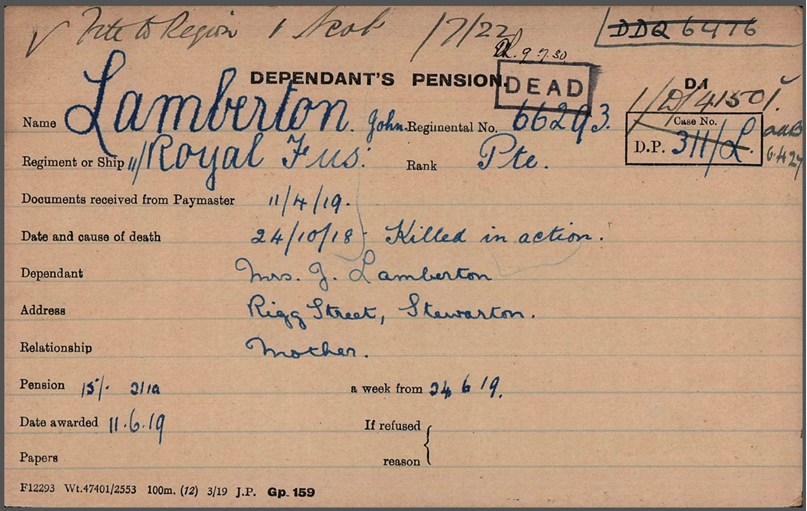 √ File to Region 1 Scot 17/22
DDQ 6476
9.7.30
DEPENDANT'S PENSION.
DEAD
D.1
1/D/41501.
Name Lamberton. John. Regimental No. 66293.
Case No.
D.P. 311/L.
6.4.27
Regiment or Ship 11/Royal Fus. Rank Pte.
Documents received from Paymaster 11/4/19.
Date and cause of death 24/10/18. Killed in action.
Dependant Mrs. J. Lamberton
Address Rigg Street, Stewarton.
Relationship Mother.
Pension 15/- a week from 24 6 19.
Date awarded 11.6.19 If refused
Papers reason
F12293 Wt.47401/2553 100m. (12) 3/19 J.P. Gp. 159